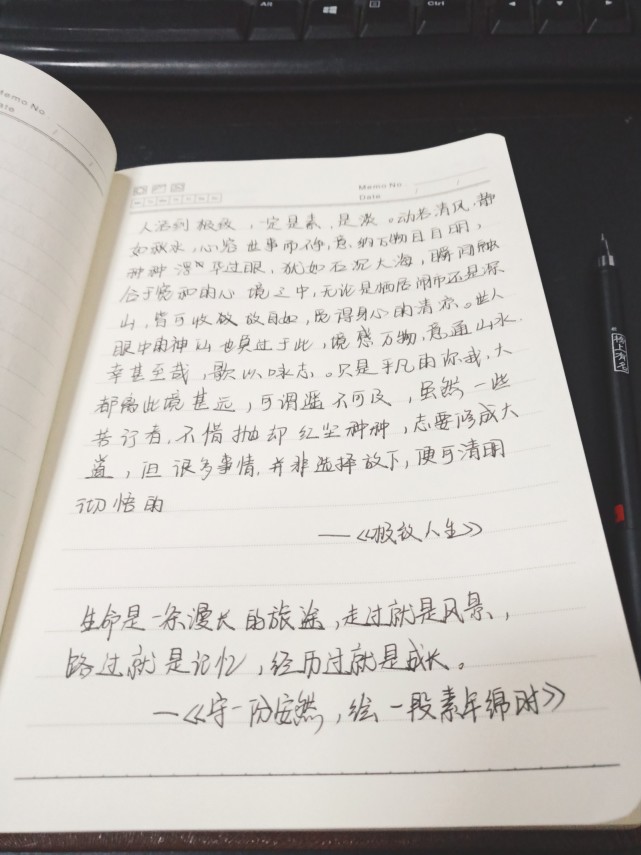 Alt
Ctrl
Memo No.
Date / /
Memo No.
Date / /
人活到极致，一定是素，是淡。动若清风，静
如秋水，心容世事而不争，意纳万物且自明，
种种浮华过眼，犹如石沉大海，瞬间融
合于宽和的心境之中，无论是栖居闹市还是深
山，皆可收放自如，觅得身心的清凉。世人
眼中的神仙也莫过于此，境惑万物，意通山水
幸甚至哉，歌以咏志。只是平凡的你我，大
都离此境甚远，可谓遥不可及，虽然一些
苦行者，不惜抛却红尘种种，志要修成大
道，但很多事情，并非选择放下，便可清明
彻悟的
—《极致人生》
生命是一条漫长的旅途，走过就是风景，
路过就是记忆，经历过就是成长。
—《守一份安然，绘一段素年绵时》